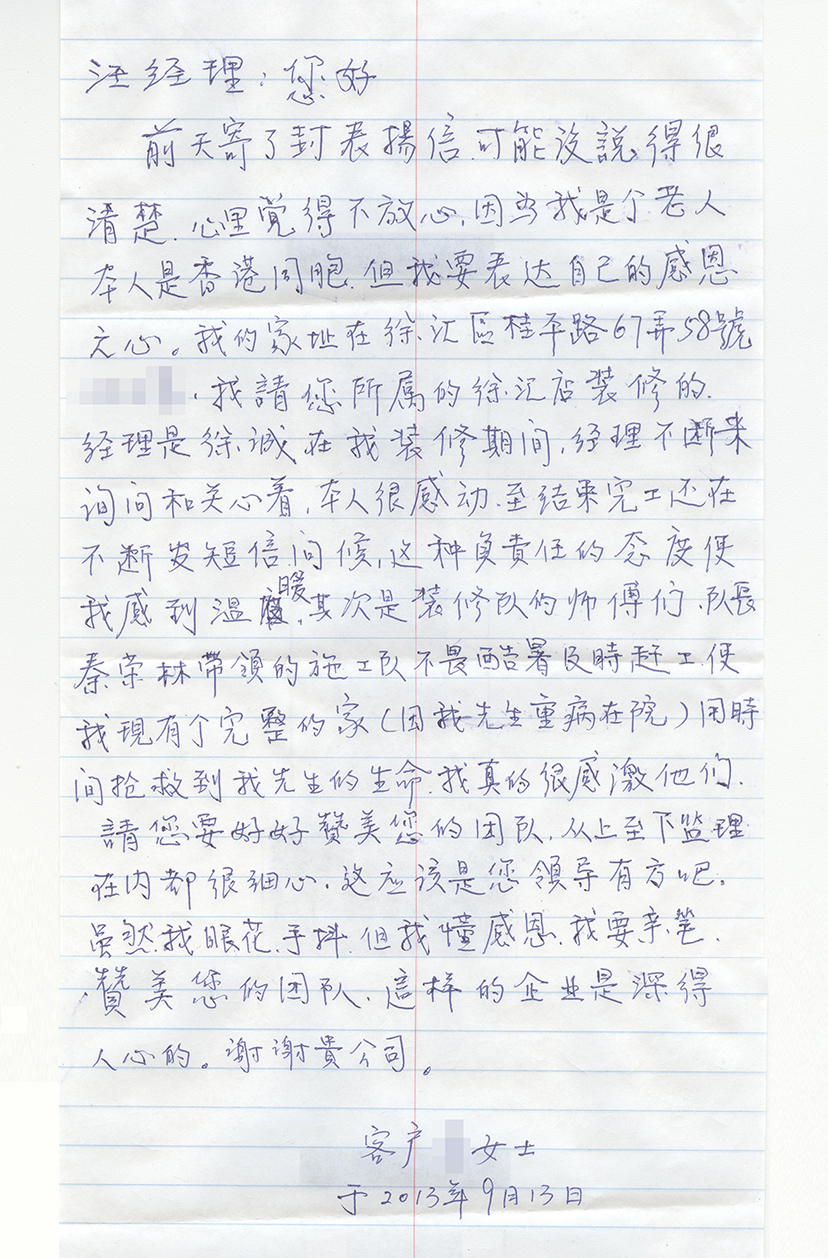 汪经理：您好
前天寄了封表揚信.可能没説得很
清楚.心里覚得不放心,因当我是个老人
本人是香港同胞.但我要表达自己的感恩
之心。我的家址在徐汇區桂平路67弄58號
.我請您所属的徐汇店装修的.
经理是徐诚.在我装修期间,经理不断来
询问和关心着,本人很感动.至结束完工还在
不断发短信问候,这种负責任的态度使
我感到温暖,其次是装修队的师傅们.队長
秦荣林带領的施工队不畏酷署及時赶工.使
我現有个完整的家(因我先生重病在院)用時
间抢救到我先生的生命.我真的很感激他们.
請您要好好赞美您的团队,从上至下监理
在内都很细心.这应该是您領导有方吧.
虽然我眼花.手抖.但我懂感恩.我要亲笔.
赞美您的团队.這样的企业是深得
人心的。谢谢貴公司。
客户 女士
于2013年9月13日